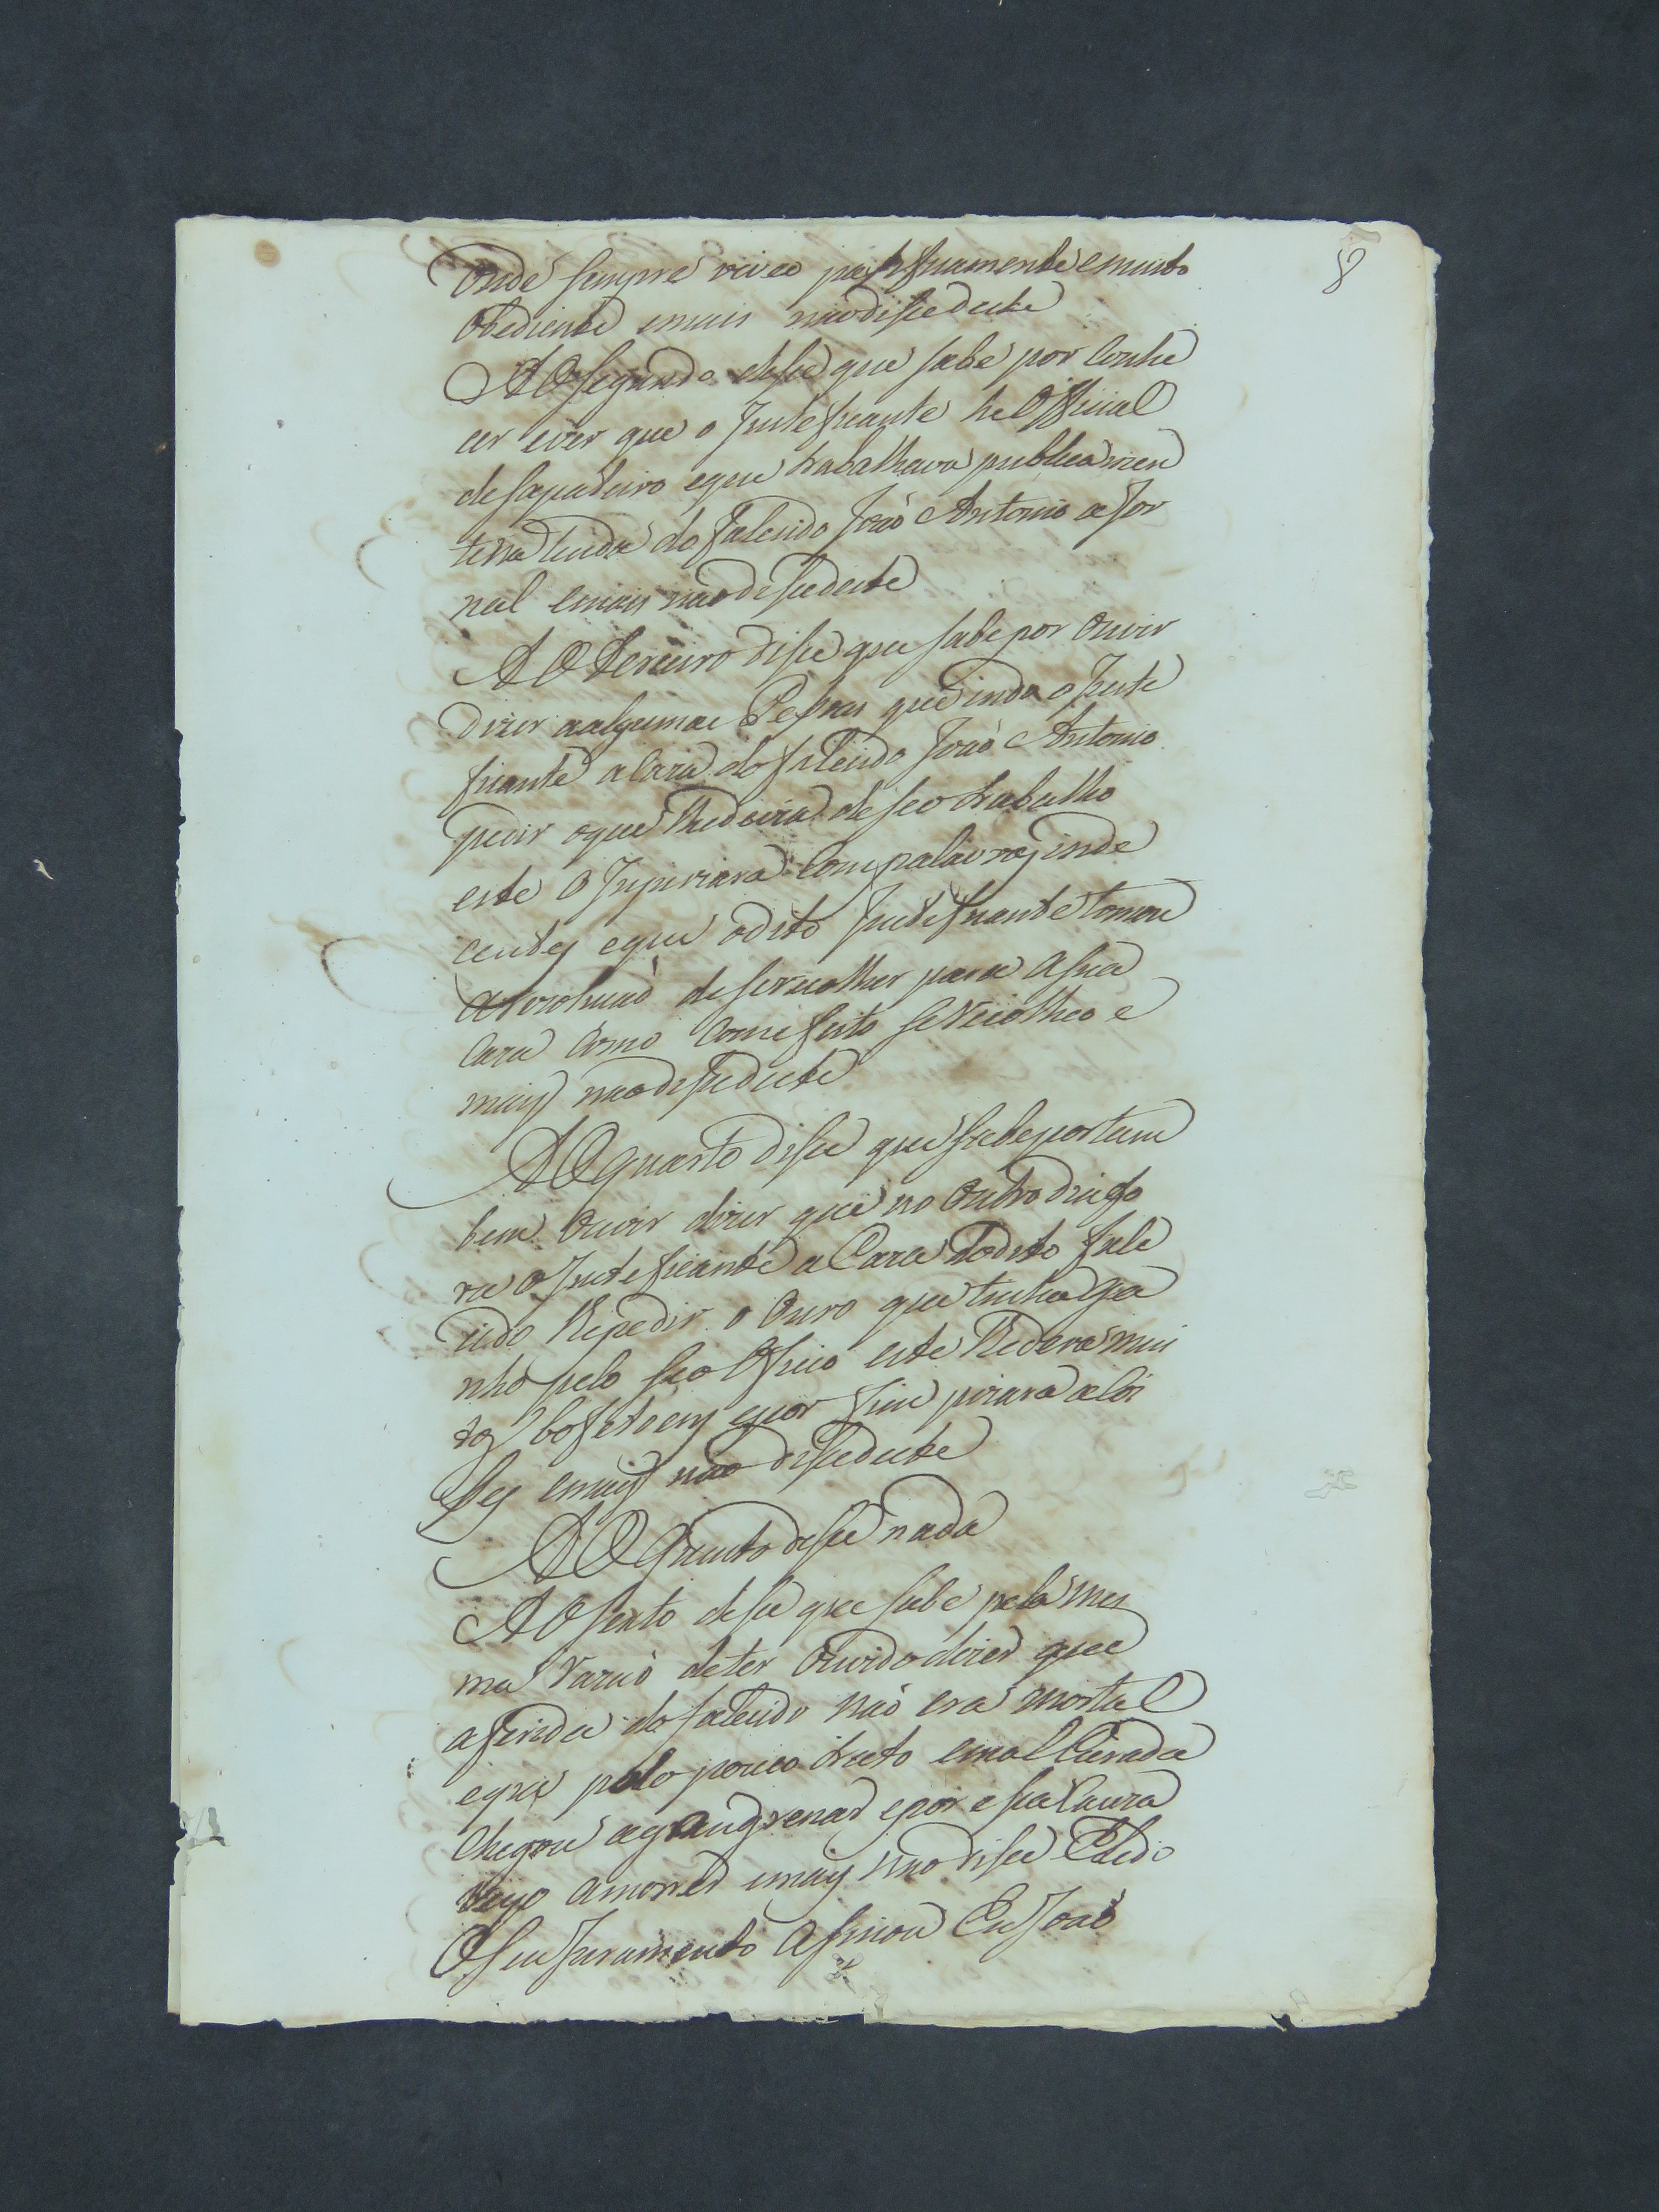 8
Onde sempre viveo pasificamente e muito
Obediente emais naodisse deste
AO Segundo disse que sabe por Conhe
cer ever que o Justeficante he Official
desapateiro eque trabalhava publicamen
te na tenda do falecido Joaõ Antonio a Jor
nal emais naodisse deste
AO Terceiro disse que sabe por Ouvir
dizer aalgumas Pessoas que indo o Juste
ficante a Caza do falecido Joaõ Antonio
pedir oque lhe devia deseo trabalho
este o Injuriara Com palavras inde
centes eque odito Justeficante tomou
a rezoluçaõ de se recolher para a sua
Caza Como Com efeito se recolheo e
mais naodisse deste
AO Quarto disse que sabe por tam
bem Ouvir dizer que no Outro dia fo
ra o Justeficante a Caza do dito fale
cido Repedir o Ouro que tinha ga
nho pelo seo Oficio este lhe dera mui
tos bofetoens epor fim puxara a Coi
ses emais não disse deste
AO Quinto disse nada
AO Sexto disse que sabe pela mes
ma razaõ deter Ouvido dizer que
aferida do falecido naõ era mortal
eque pelo pouco trato emal Curada
Chegou agangrenar epor essa Cauza
veyo amorrer emais naodisse Edeo
O seu Juramento Asinou Eu Joaõ